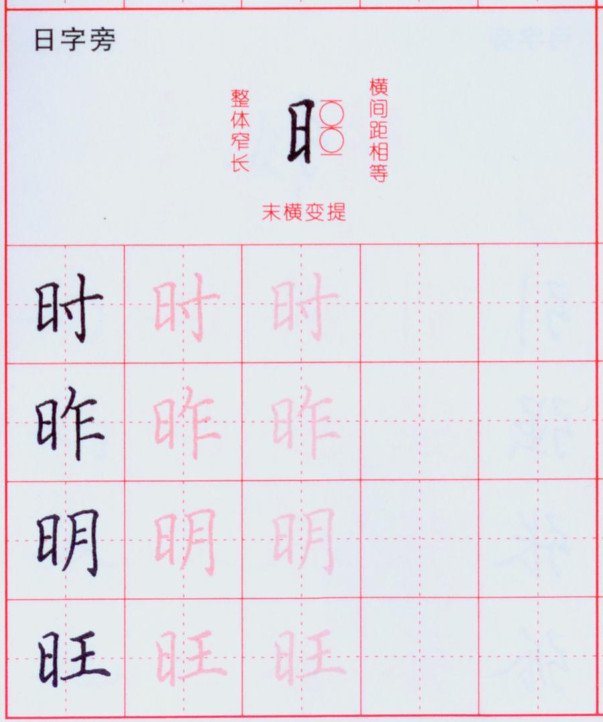 日字旁
整体窄长
日
横间距相等
末横变提
时 时 时
昨 昨 昨
明 明 明
旺 旺 旺